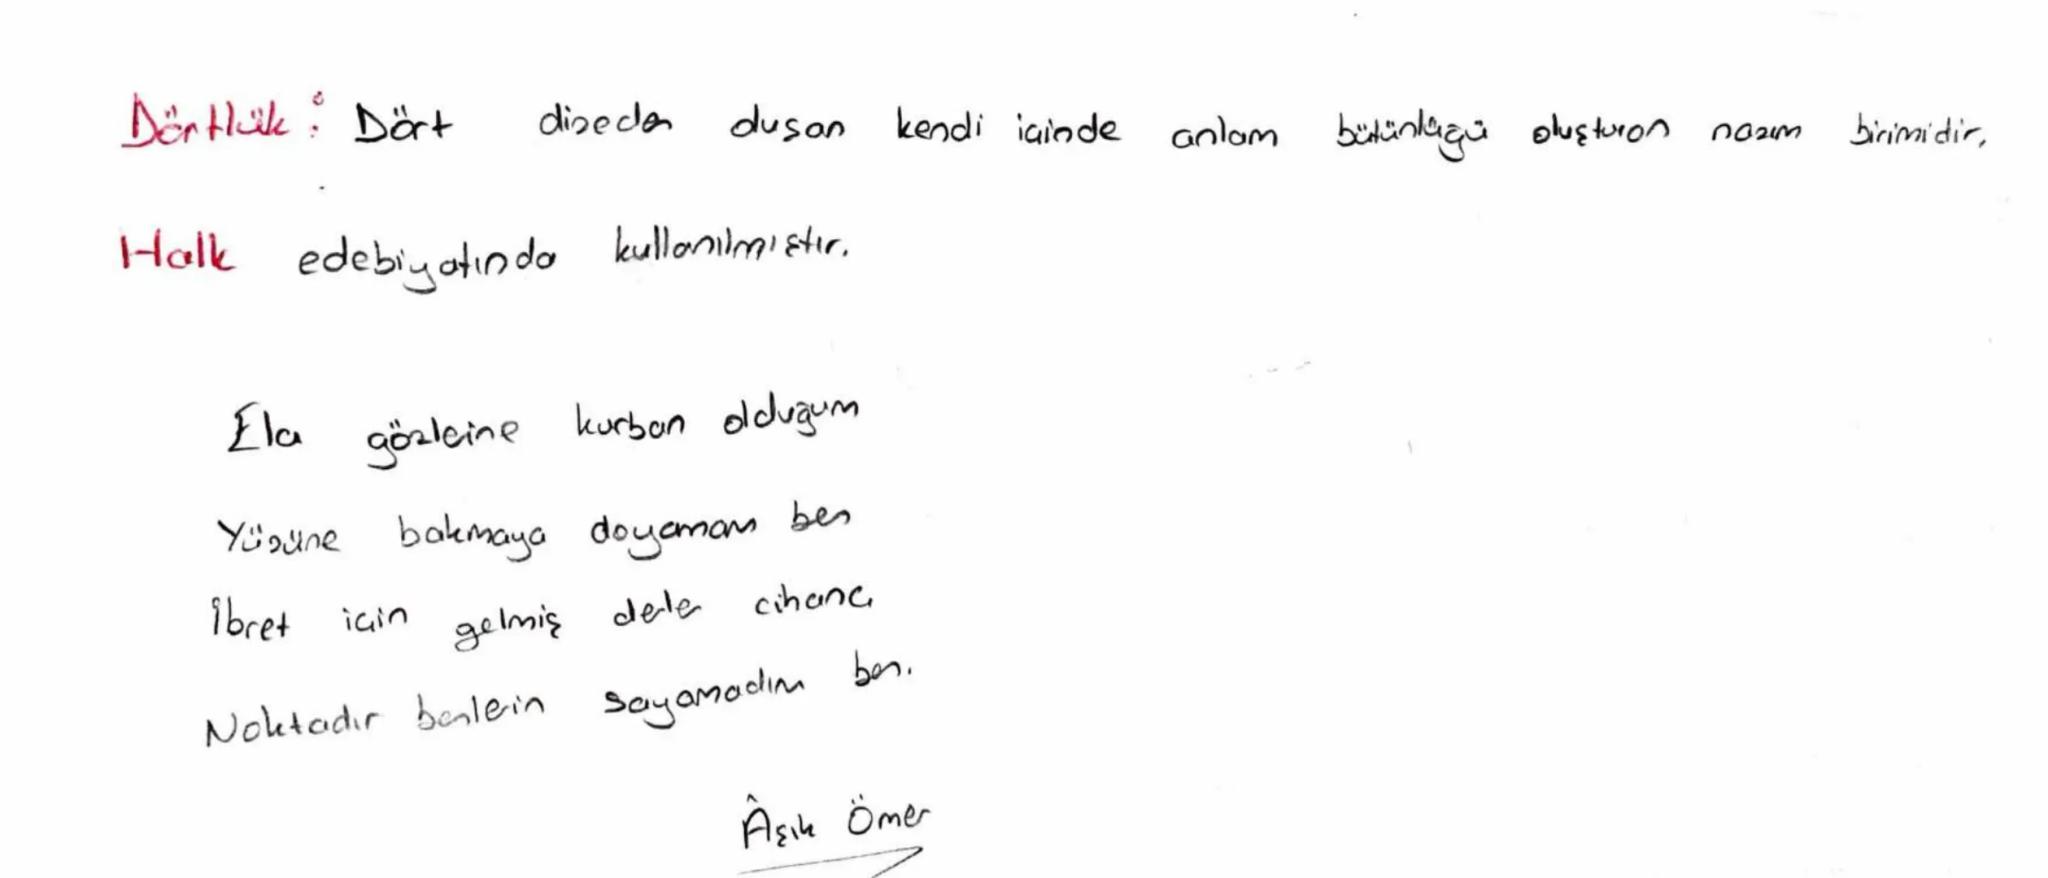 Dörtlük: Dört dizeden oluşan kendi içinde anlam bütünlüğü oluşturan nazım birimidir.
Halk edebiyatında kullanılmıştır.
Ela gözlerine kurban olduğum
Yüzüne bakmaya doyamam ben
İbret için gelmiş derler cihana
Noktadır benlerin sayamadım ben.
Âşık Ömer